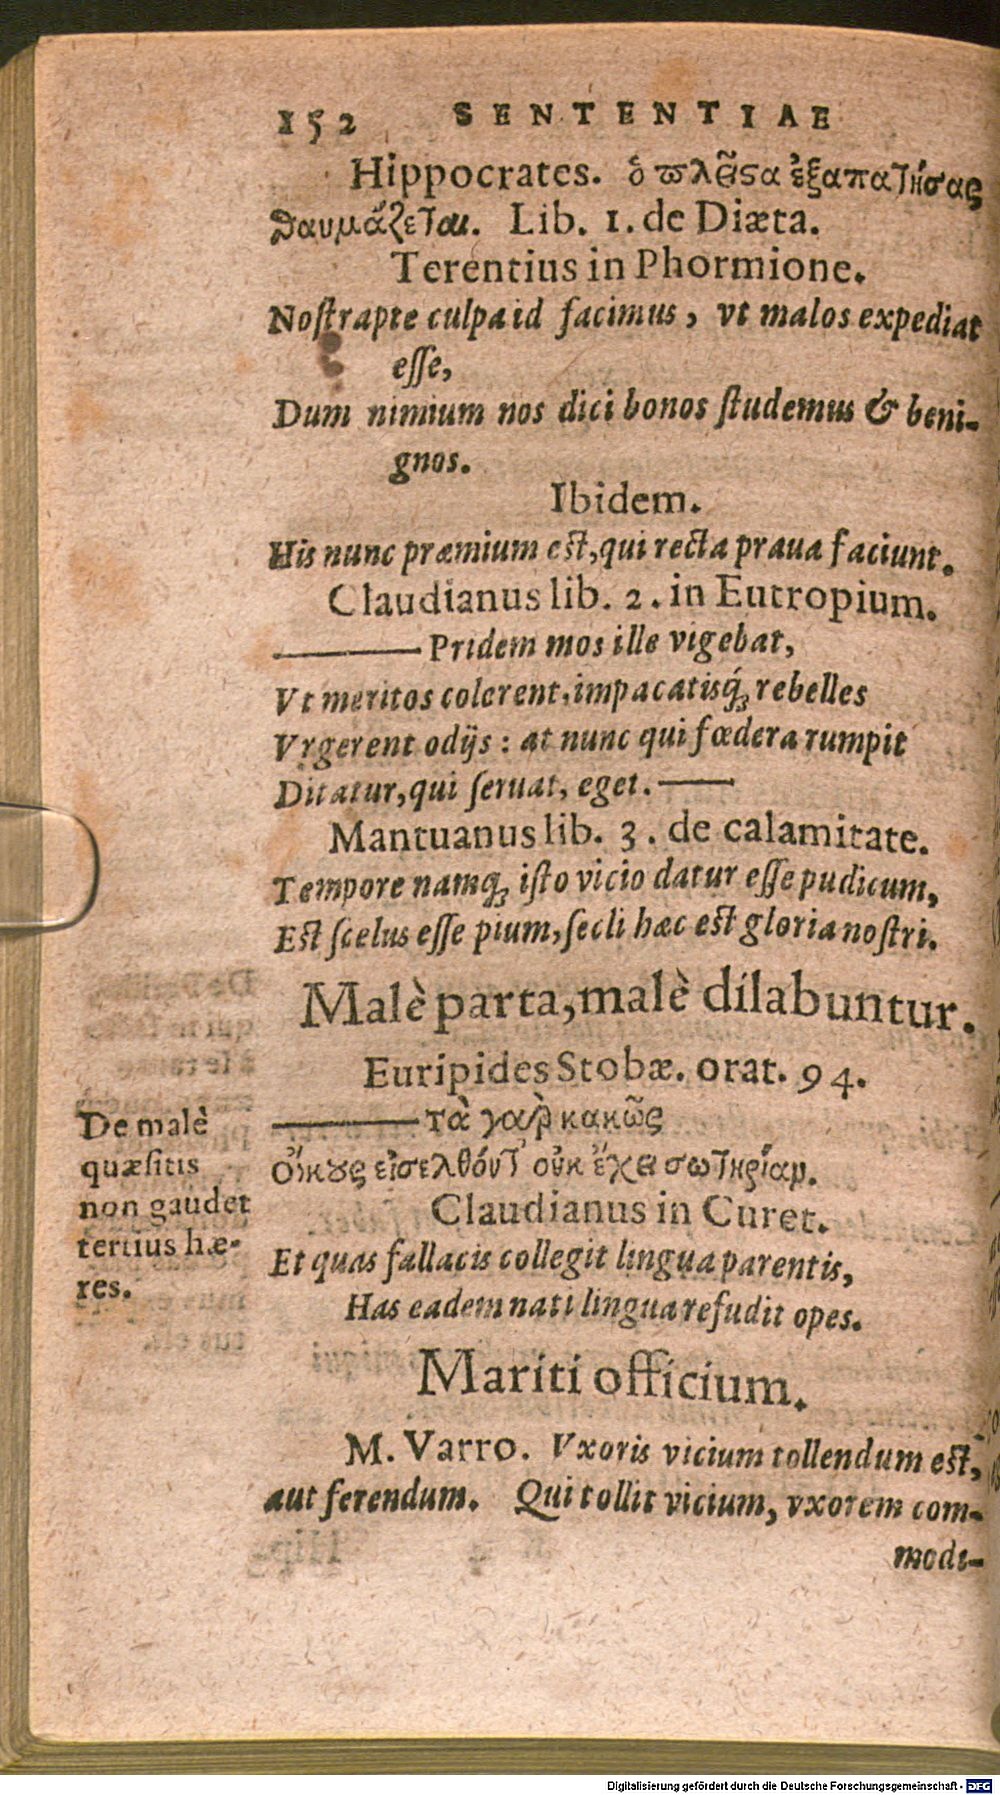 152 SENTENTIAE
Hippocrates. ὁ πλεῖστα ἐξαπατήσας
θαυμάζεται. Lib. 1. de Diæta.
Terentius in Phormione.
Nostrapte culpa id facimus, vt malos expediat
esse,
Dum nimium nos dici bonos studemus & beni-
gnos.
Ibidem.
His nunc præmium est, qui recta praua faciunt.
Claudianus lib. 2. in Eutropium.
——— Pridem mos ille vigebat,
Vt meritos colerent, impacatisq́; rebelles
Vrgerent odijs: at nunc qui fœdera rumpit
Ditatur, qui seruat, eget. ———
Mantuanus lib. 3. de calamitate.
Tempore namq; isto vicio datur esse pudicum,
Est scelus esse pium, secli hæc est gloria nostri.
Malè parta, malè dilabuntur.
Euripides Stobæ. orat. 94.
——— τὰ γὰρ κακῶς
Οἴκους εἰσελθόντ' οὐκ ἔχει σωτηρίαν.
De malè
quæsitis
non gaudet
tertius hæ-
res.
Claudianus in Curet.
Et quas fallacis collegit lingua parentis,
Has eadem nati lingua refudit opes.
Mariti officium.
M. Varro. Vxoris vicium tollendum est,
aut ferendum. Qui tollit vicium, vxorem com-
modi-
Digitalisierung gefördert durch die Deutsche Forschungsgemeinschaft - DFG